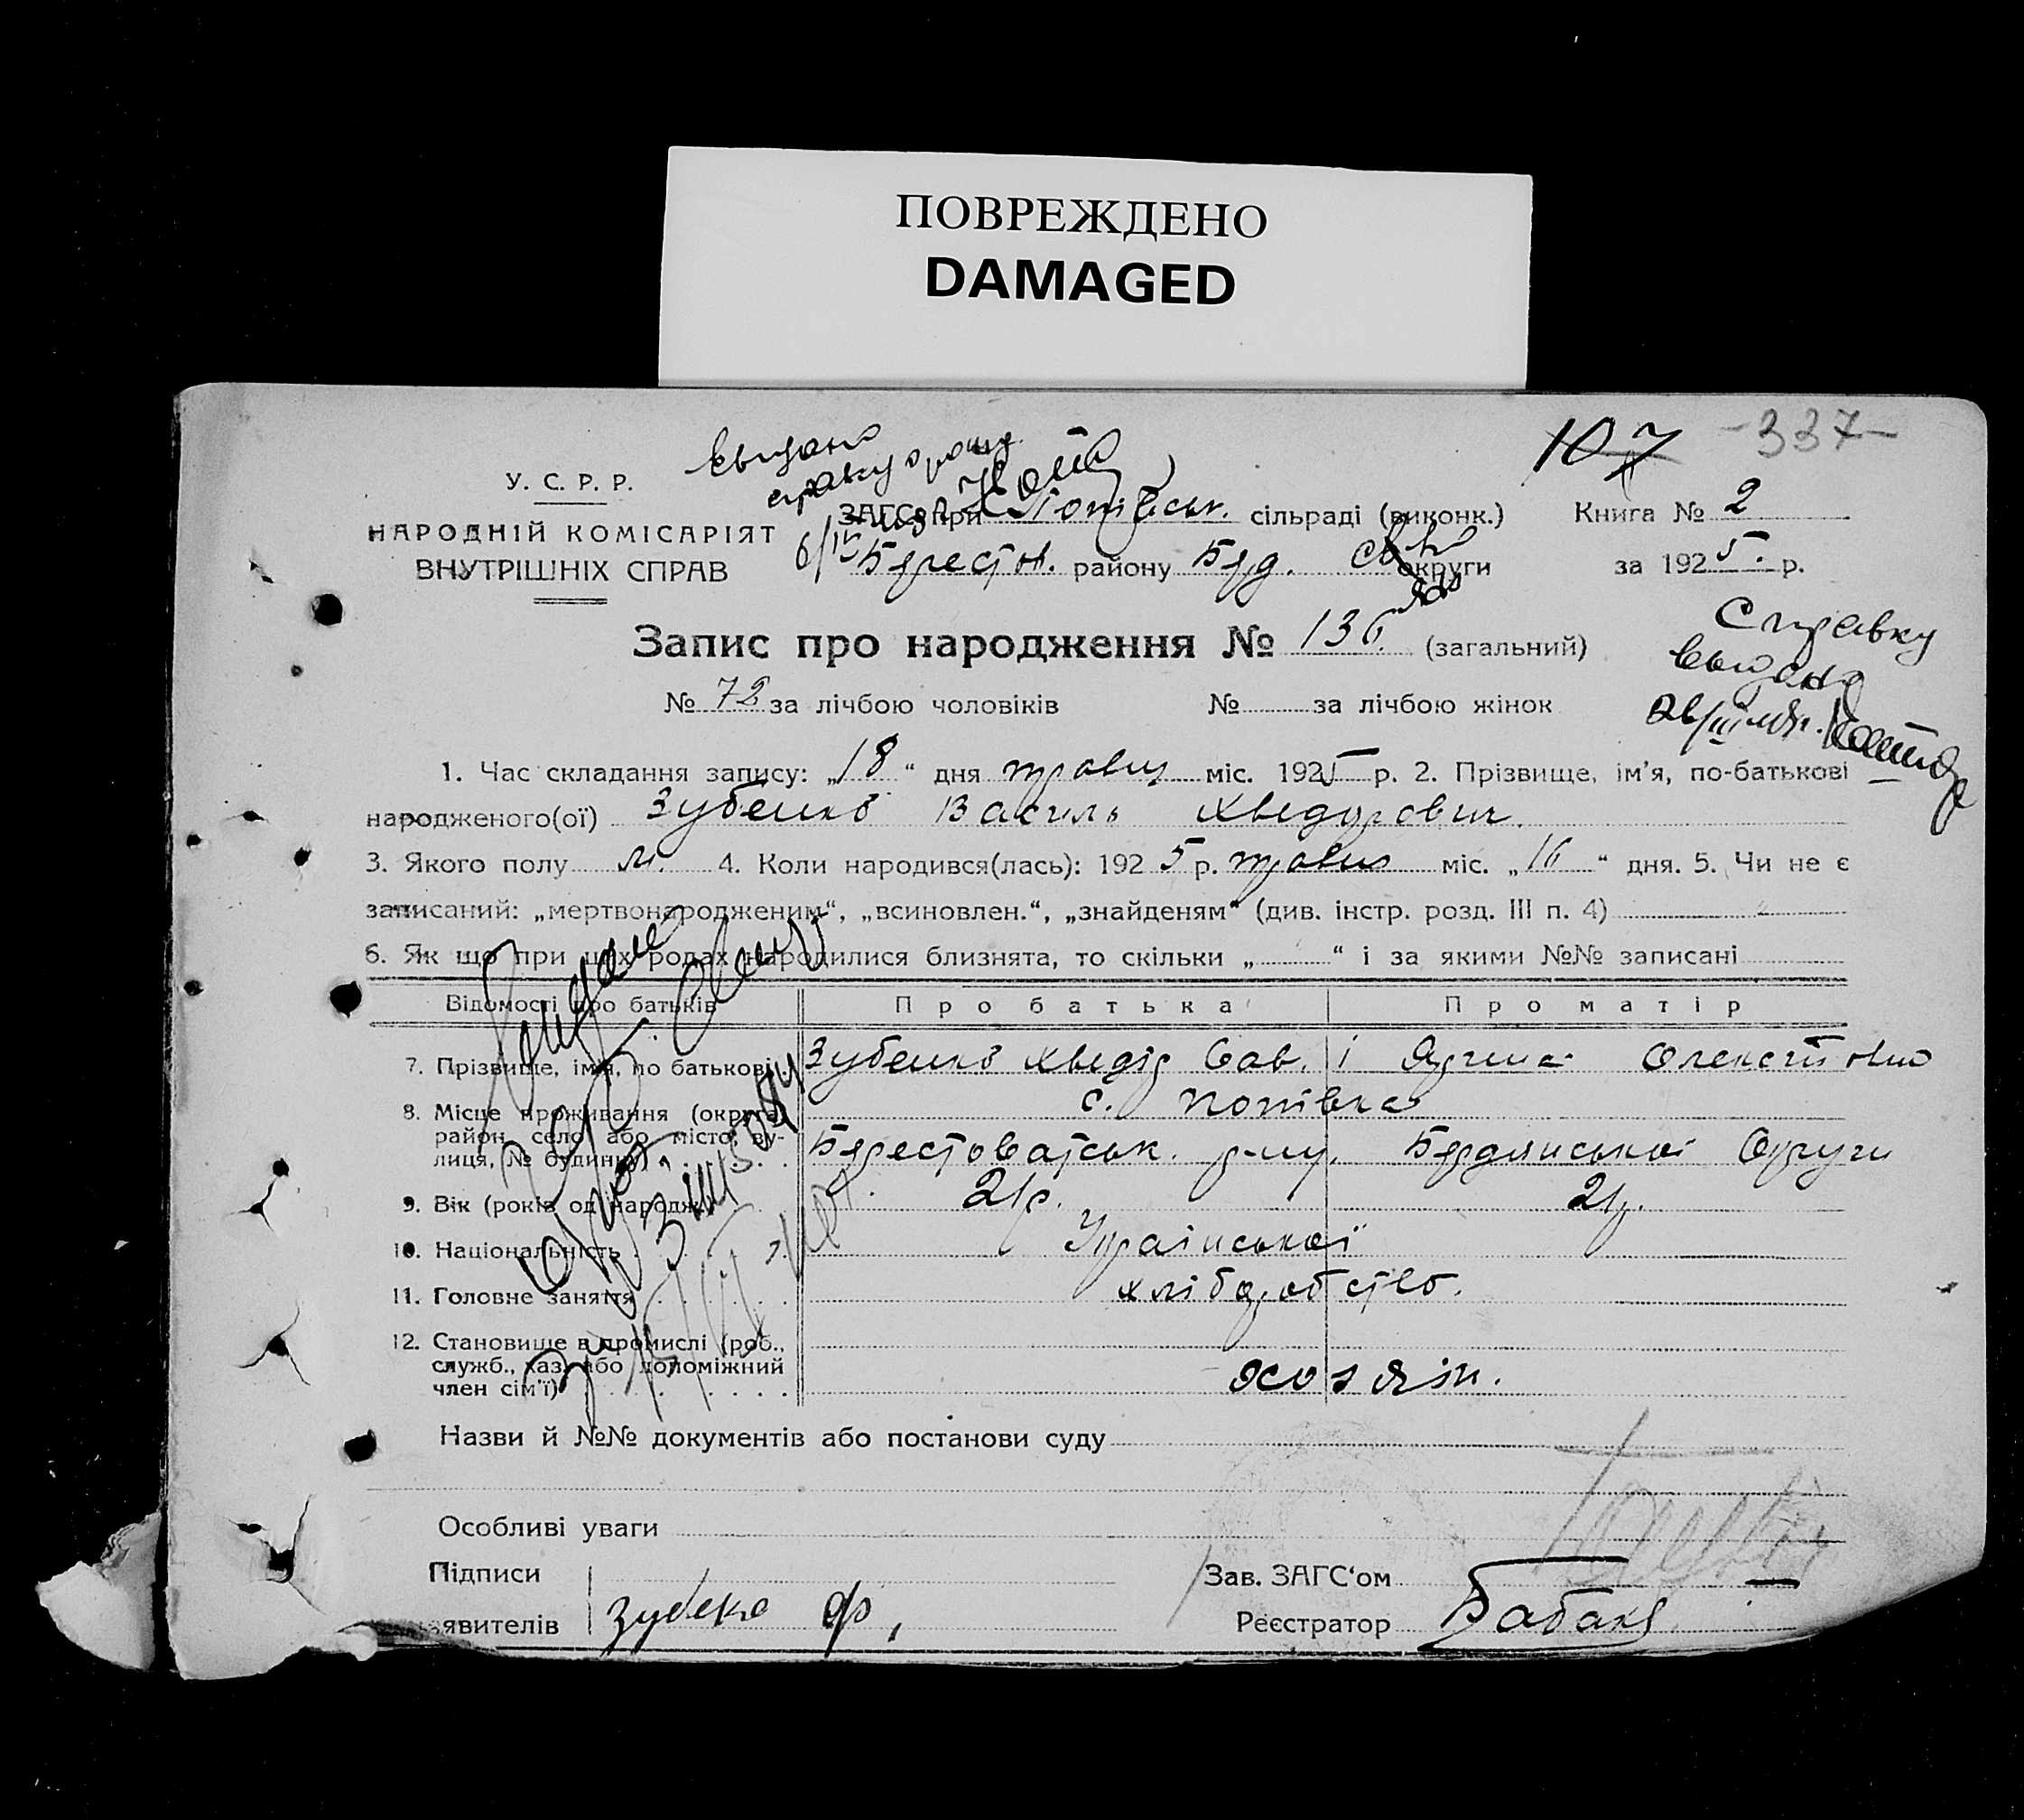 ПОВРЕЖДЕНО
DAMAGED
107 -337-
У. С. Р. Р.
НАРОДНІЙ КОМІСАРІЯТ
ВНУТРІШНІХ СПРАВ
выдано
справку
ЗАГС при Попівськ. сільраді (виконк.) Книга № 2
Берестов. району Берд. округи за 1925. р.
Запис про народження № 136. (загальний)
№ 72 за лічбою чоловіків № за лічбою жінок
Справку
выдана
1. Час складання запису: „18“ дня травня міс. 1925 р. 2. Прізвище, ім’я, по-батькові
народженого(ої) Зубенко Василь Хведорович.
3. Якого полу м. 4. Коли народився(лась): 1925 р. травня міс. „16“ дня. 5. Чи не є
записаний: „мертвонародженим“, „всиновлен.“, „знайденям“ (див. інстр. розд. III п. 4)
6. Як що при цих родах народилися близнята, то скільки „ “ і за якими №№ записані
Відомості про батьків Про батька Про матір
7. Прізвище, ім’я, по батькові Зубенко Хведір Сав. і Ярина Олексіївна
8. Місце проживання (округа, с. Попівка
район, село або місто, ву-
лиця, № будинку) Берестоватськ. р-ну. Бердянської Округи
9. Вік (років од народж.) 21р. 21р.
10. Національність Української
11. Головне заняття хліборобство.
12. Становище в промислі (роб.,
служб., хаз. або допоміжний
член сім’ї) хозяїн.
Назви й №№ документів або постанови суду
Особливі уваги
Підписи Зав. ЗАГС‘ом
явителів Зубенко Ф, Реєстратор Бабак